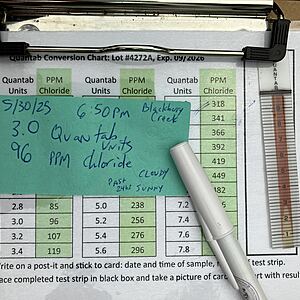 Quantab Conversion Chart: Lot #4272A, Exp. 09/2026
Quantab Units PPM Chloride Quantab Units PPM Chloride Quantab Units PPM Chloride
318
341
366
392
419
449
482
5/30/25 6:50PM Blackbury Creek
3.0 Quantab Units
96 PPM Chloride
CLOUDY
PAST 24HRS SUNNY
2.8 85 5.0 238 7.2
3.0 96 5.2 256 7.4
3.2 107 5.4 276 7.6
3.4 119 5.6 296
rite on a post-it and stick to card: date and time of sample, test strip.
ace completed test strip in black box and take a picture of card with resul